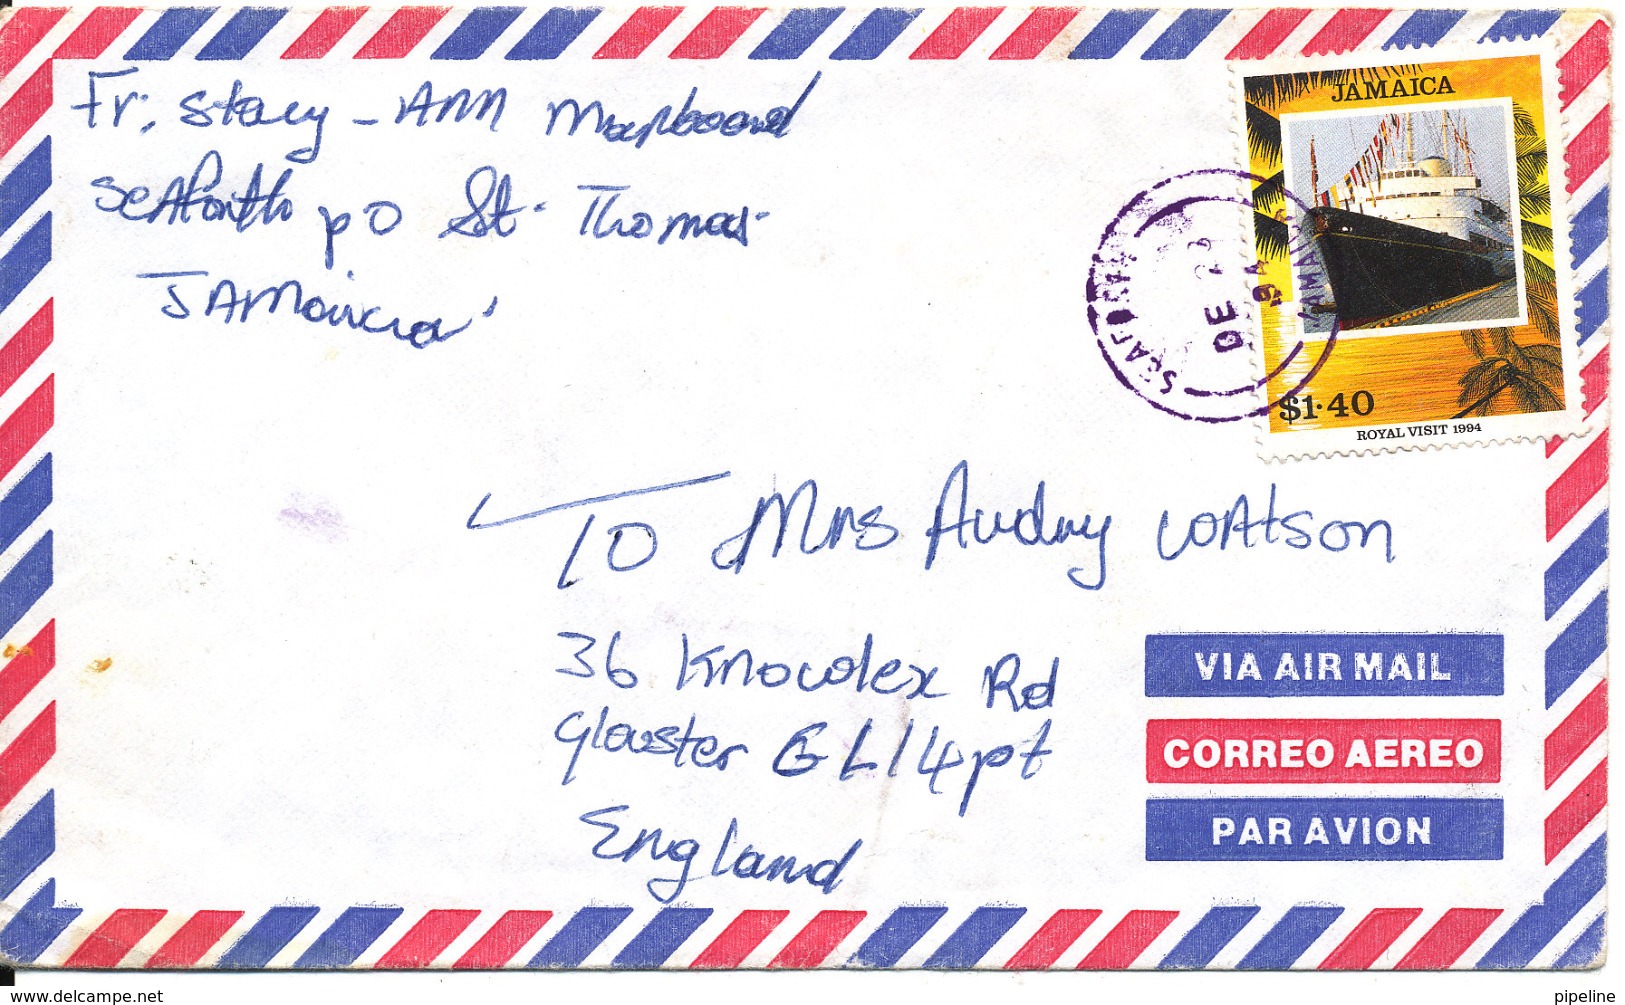 Fr: Stacy - Ann
Seaforth po St. Thomas
Jamaica
JAMAICA
SEAFORTH
DE 2
94
JAMAICA
$1·40
ROYAL VISIT 1994
TO Mrs Audry Watson
36 Knowlex Rd
Glouster GL14pt
England
VIA AIR MAIL
CORREO AEREO
PAR AVION
www.delcampe.net
pipeline